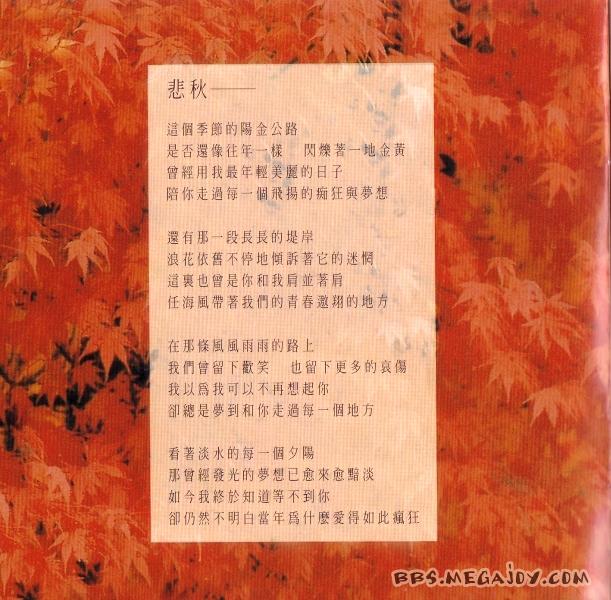 悲秋——
這個季節的陽金公路
是否還像往年一樣　閃爍著一地金黃
曾經用我最年輕美麗的日子
陪你走過每一個飛揚的痴狂與夢想
還有那一段長長的堤岸
浪花依舊不停地傾訴著它的迷惘
這裏也曾是你和我肩並著肩
任海風帶著我們的青春遨翔的地方
在那條風風雨雨的路上
我們曾留下歡笑　也留下更多的哀傷
我以爲我可以不再想起你
卻總是夢到和你走過每一個地方
看著淡水的每一個夕陽
那曾經發光的夢想已愈來愈黯淡
如今我終於知道等不到你
卻仍然不明白當年爲什麼愛得如此瘋狂
BBS.MEGAJOY.COM